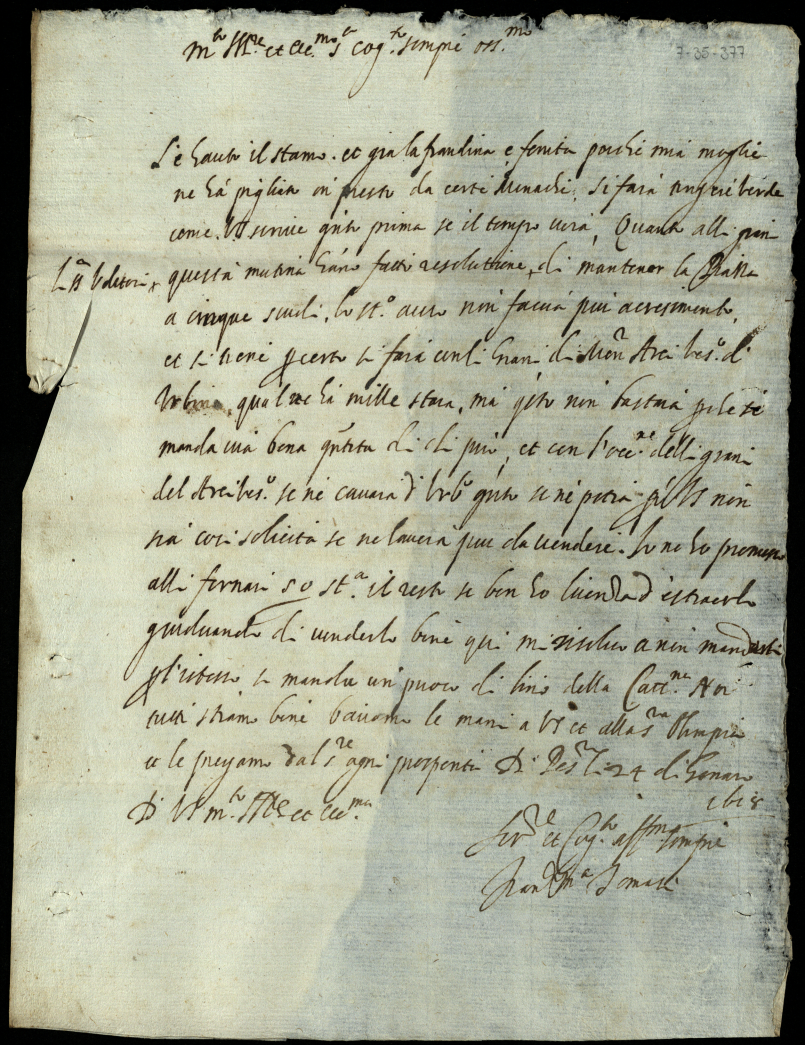 m.to Ill.re et ecc.mo s.r Cog.to sempre oss.mo
7-35-377
S'è hauto il stamo. et gia la frandina è fenita perche mia moglie
ne hà pigliato in presto da certe Monache, si farà tingere verde
come VS scrive q.to prima se il tempo verà, Quanto alli grani
questa matina hano fatto resolutione di mantener la Piazza
a cinque scudi, lo st.o accio non faccia più acrescimento,
et si tiene p certo si farà con li Grani di Mon.r Arcives.o di
Urbino, qualche mille stara, ma q.sto non bastarà perche si
manda via bona q.tita di di più, et con l'occ.ne delli grani
del Arcives.o se ne cavarà d'Urb.o q.to se ne potrà VS non
sia così solicita se ne haverà pur da vendere. Io ne ho promesso
alli fornari 50 st.a il resto se ben ho licenza d'estraerlo
giudicando di venderlo bene qui mi risolvo a non mandarlo
p l'istesso si manda un puoco di lino della Catt.na Noi
tutti stiamo bene baciamo le mani a VS et alla s.ra Olimpia
et le pregamo dal s.re ogni prosperità Di Pes.o li 24 di Genaro
1618
Di VS m.to Ill.re et Ecc.ma
Ser.re et Cog.to aff.mo sempre
Fran.co M.a Tomasi